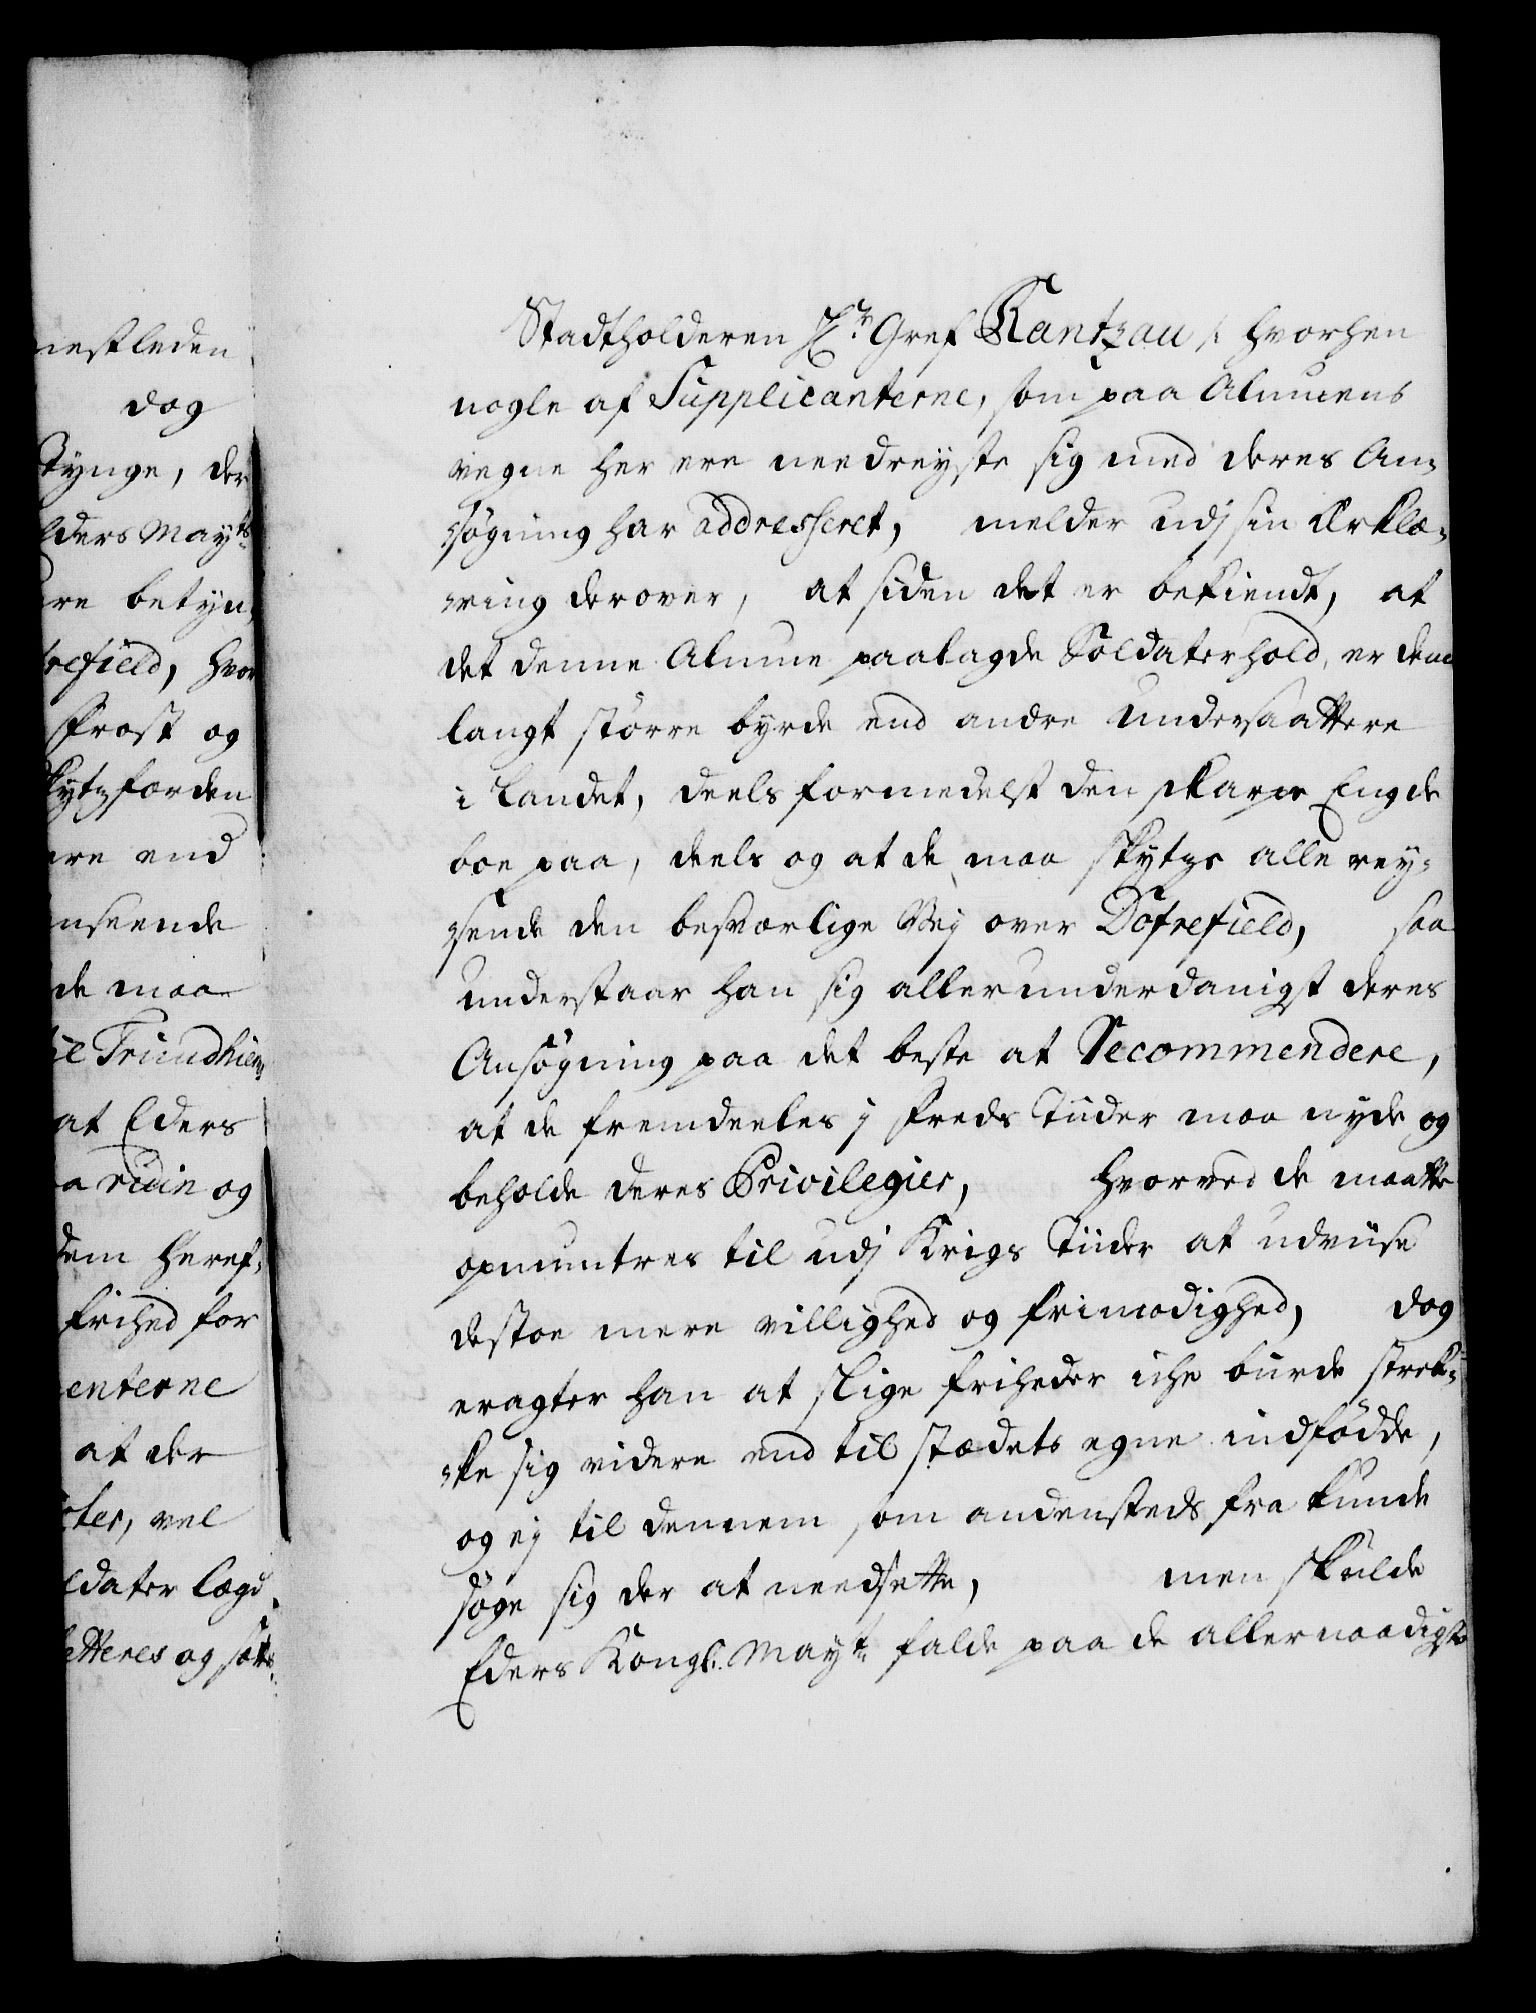 nestleden
dog
Tynge, der
lders Mayts
re betyn,
refield, hvor
frost og
skytzforden
ere end
nseende
de maa
il Trundhiem,
at Eders
a ruin og
dem heref,
frihed for
enterne
at der
ter, vel
ldater Lægd
etteres og satt,
Stadtholderen Hr. Gref Rantzau /: hvorhen
nogle af Supplicanterne, som paa Almuens
vegne her ere needreyste sig med deres An,
søgning har addresseret, melder udj sin Erklæ,
ring derover, at siden det er bekiendt, at
det denne Almue paalagde Soldaterhold, er dem
langt större byrde end andre Undersaattere
i Landet, deels formedelst den skarpe Eng de
boe paa, deels og at de maa skytze alle rey,
sende den besværlige Vej over Dofrefield, saa
understaar han sig allerunderdanigst deres
Ansögning paa det beste at Recommendere,
at de fremdeeles j freds Tiider maa nyde og
beholde deres Privilegier, hvorved de maatte
opmuntres til udj Krigs Tiider at udviise
destoe mere villighed og frimodighed, dog
eragter han at slige friheder iche burde strek,
ke sig videre end til stædets egne indfödde,
og ej til dennem som andensteds fra kunde
söge sig der at needsette, men skulde
Eders Kongl. Mayt. falde paa de allernaadigste